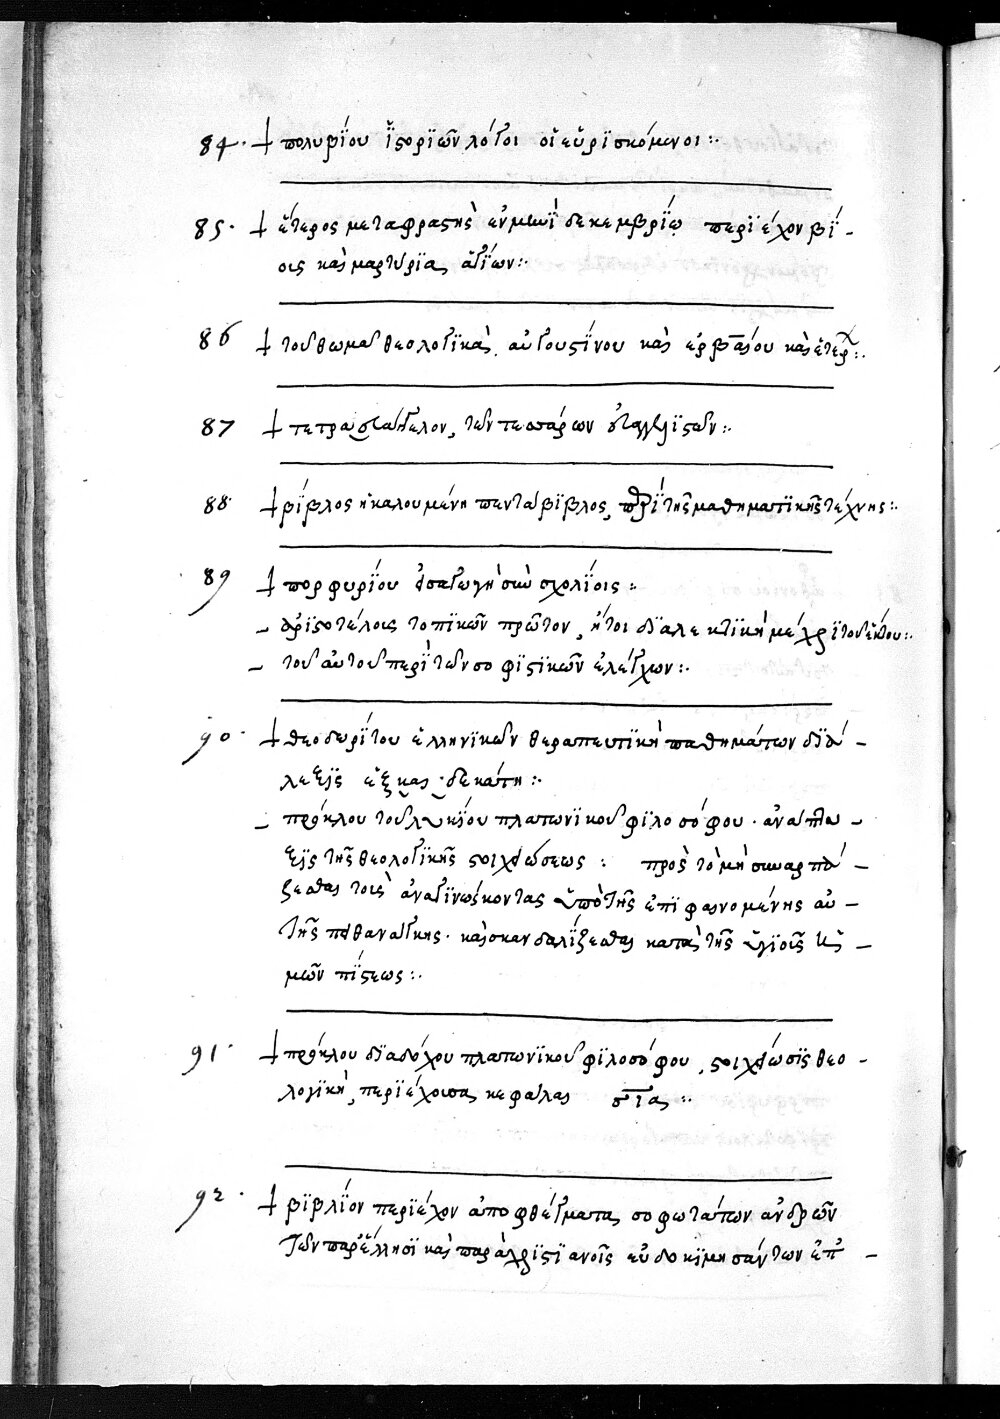 84. ⸸ πολυβΐου ἱ̈στορϊῶν λόγοι οἱ εὑρϊσκόμενοι :·
85. ⸸ ἕτερος μεταφραστὴς ἐν μηνὶ δεκεμβρΐῳ περϊέχον βΐ-
ους καὶ μαρτυρϊας ἁγΐων :·
86 ⸸ τοῦ θωμᾶ θεολογϊκὰ. αὐγουστΐνου καὶ ἑρβαίου καὶ ἑτέρ :·
87 ⸸ τετραευάγγελον, τῶν τεσσάρων εὐαγγελϊστῶν :·
88· ⸸ βΐβλος ἡ καλουμένη πεντάβϊβλος, περὶ τῆς μαθηματϊκῆς τέχνης :·
89 ⸸ πορφυρΐου εἰσαγωγὴ σὺν σχολΐοις :
- ἀρϊστοτέλους τοπϊκῶν πρῶτον, ἤτοι δϊαλεκτϊκὴ μέχρϊ τοῦ ἕκτου :·
- τοῦ αὐτοῦ περὶ τῶν σοφϊστϊκῶν ἐλέγχων :·
90· ⸸ θεοδωρΐτου ἑλληνϊκῶν θεραπευτϊκὴ παθημάτων δϊά-
λεξϊς ἑξκαιδεκάτη :·
- πρόκλου τοῦ λυκΐου πλατωνϊκοῦ φϊλοσόφου · ἀνάπτυ-
ξϊς τῆς θεολογϊκῆς στοιχειώσεως : πρὸς τὸ μὴ συναρπά-
ζεσθαι τοὺς ἀναγϊνώσκοντας ὑπὸ τῆς ἐπϊφαινομένης αὐ-
τῆς πειθανάγκης· καὶ σκανδαλΐζεσθαι κατὰ τῆς ὑγϊοῦς ἡ-
μῶν πΐστεως :·
91· ⸸ πρόκλου δϊαδόχου πλατωνϊκοῦ φϊλοσόφου, στοιχείωσϊς θεο-
λογϊκὴ, περϊέχουσα κεφάλαια σ͞ϊ͞α :·
92· ⸸ βϊβλΐον περϊέχον ἀποφθέγματα σοφωτάτων ἀνδρῶν
τῶν παρ' ἕλλησϊ καὶ παρὰ χρϊστϊανοῖς εὐδοκϊμησάντων ἐπ' -